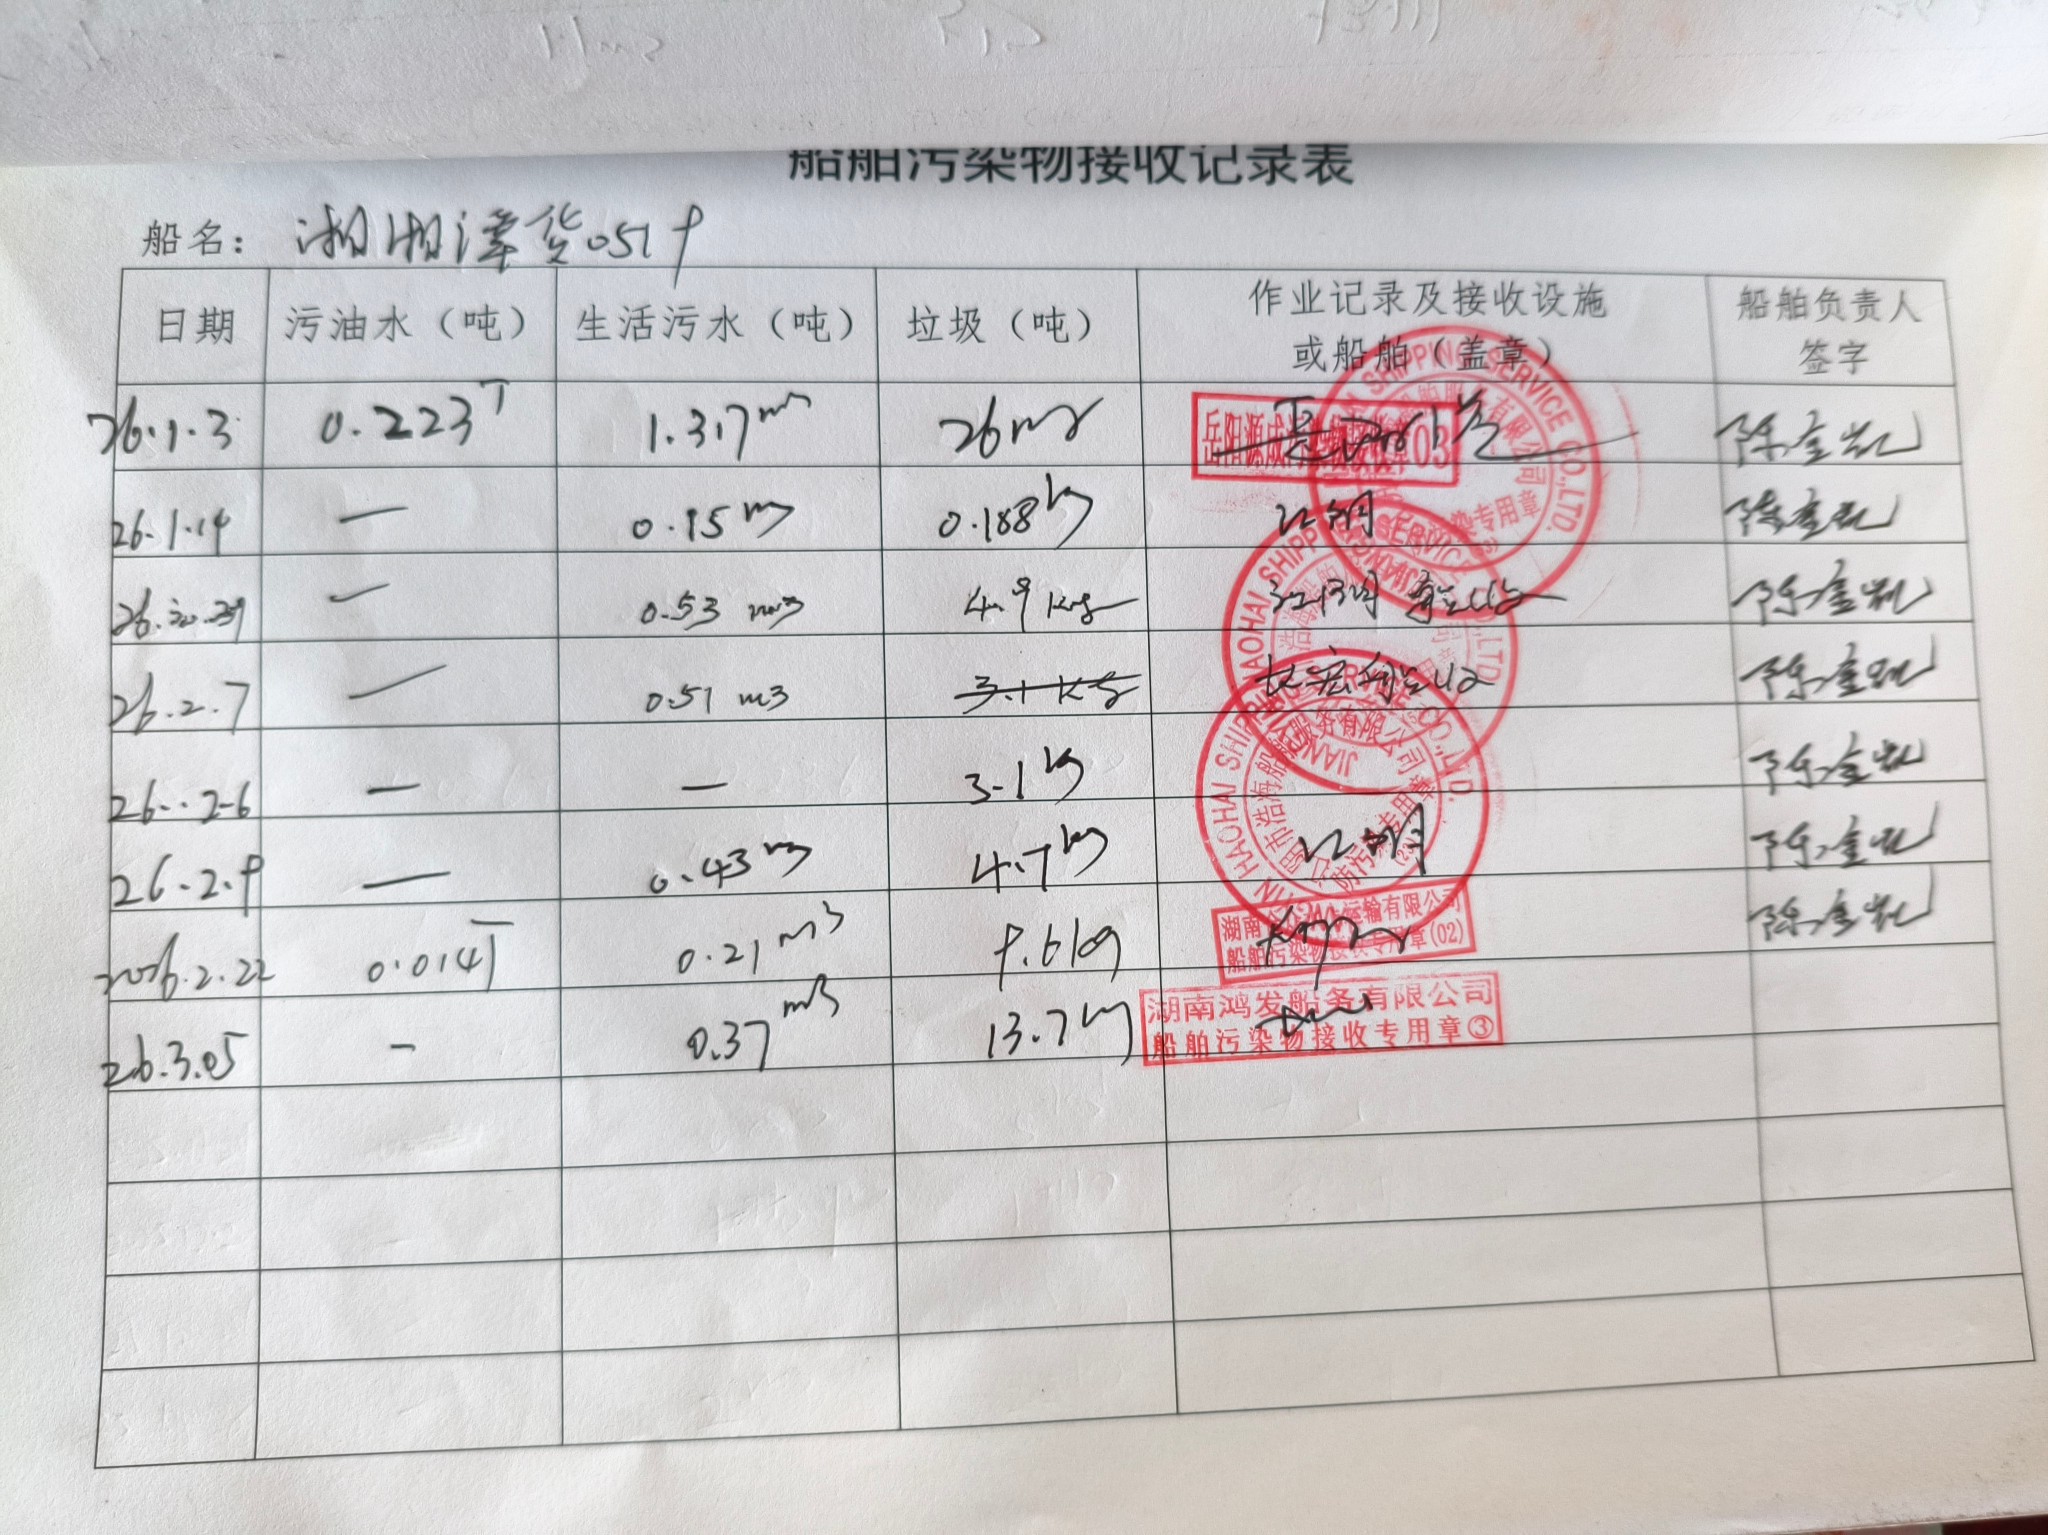 船舶污染物接收记录表
船名: 湘湘潭货0519
日期 污油水（吨） 生活污水（吨） 垃圾（吨） 作业记录及接收设施 船舶负责人
或船舶（盖章） 签字
26.1.3 0.223T 1.317m3 26 岳阳源成 03 陈金凯
26.1.14 — 0.15m3 0.188kg 江朗 陈金凯
— 0.53 m3 4.9 Kg 陈金凯
26.2.7 — 0.51 m3 3.1 Kg 长宏 陈金凯
26..2-6 — — 3.1kg 陈金凯
26.2.9 — 0.43m3 4.7kg 江朗 陈金凯
2026.2.22 0.014T 0.21m3 9.6kg 陈金凯
26.3.05 - 0.37m3 13.7kg
SHIPPING SERVICE CO.,LTD.
防污染专用章
HAOHAI SHIPPING SERVICE CO.,LTD.
JIANGYIN HAOHAI SHIPPING SERVICE CO.,LTD.
江阴市浩海船舶服务有限公司
防污染专用章
湖南 运输有限公司
船舶污染物接收专用章(02)
湖南鸿发船务有限公司
船舶污染物接收专用章③